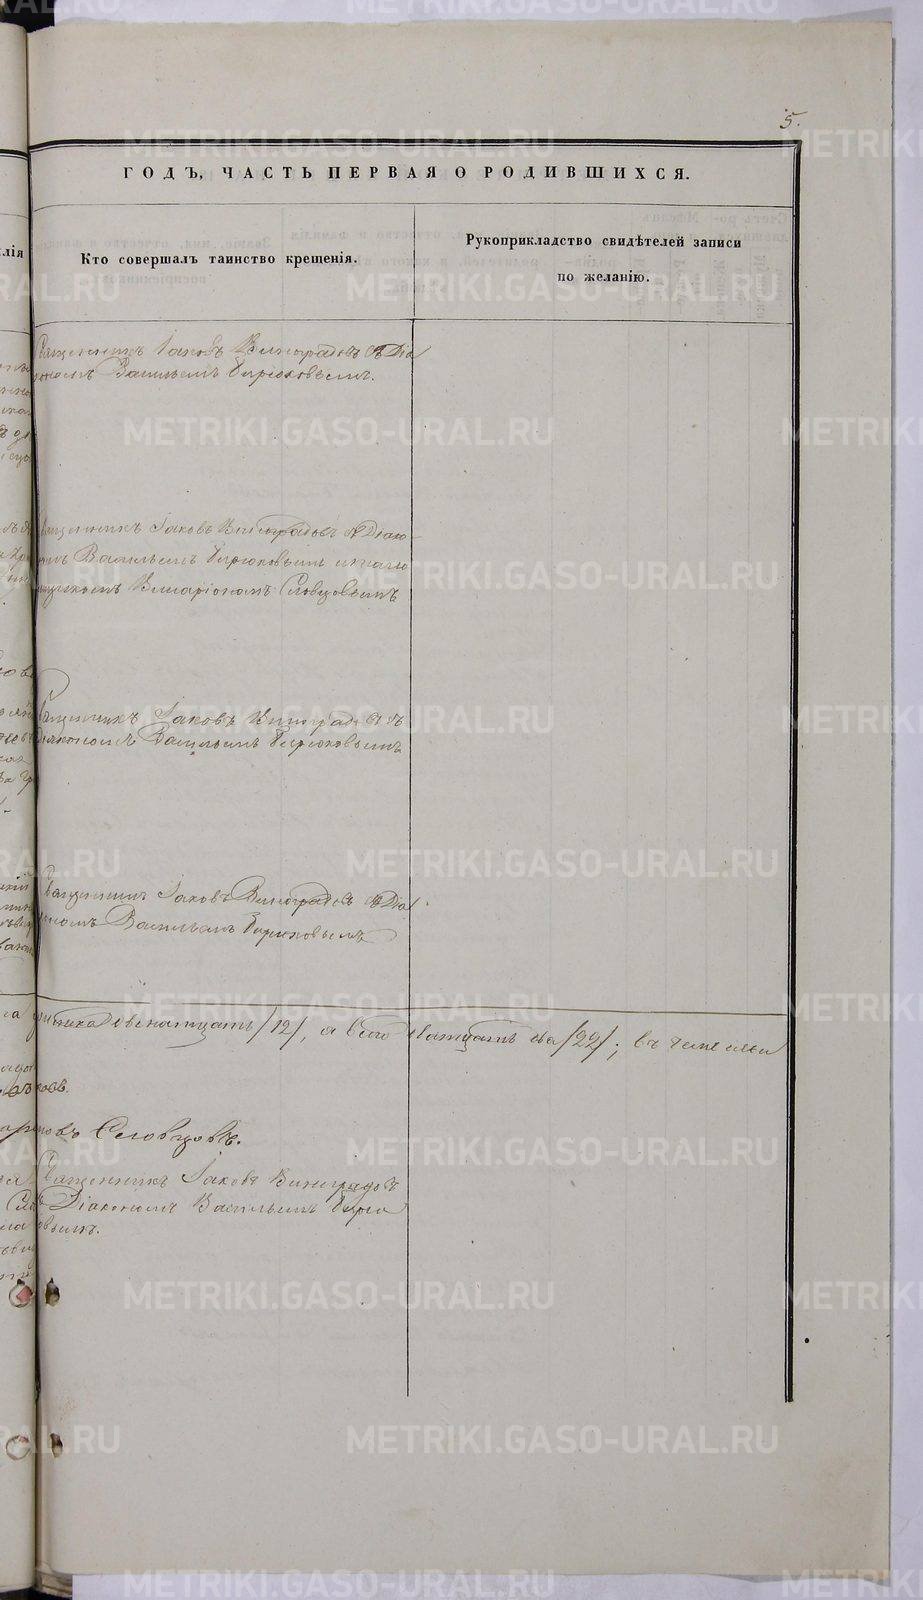 5.
ГОДЪ, ЧАСТЬ ПЕРВАЯ О РОДИВШИХСЯ.
Кто совершалъ таинство крещенія.
Рукоприкладство свидѣтелей записи
по желанію.
Священникъ Іаковъ Виноградовъ съ Діа
кономъ Васильемъ Бирюковымъ.
Священникъ Іаковъ Виноградовъ съ Діако-
номъ Васильемъ Бирюковымъ и
Иларіономъ Словцовымъ
Священникъ Іаковъ Виноградовъ съ
Діакономъ Васильемъ Бирюковымъ
Священникъ Іаковъ Виноградовъ съ Діа
кономъ Васильемъ Бирюковымъ
двенатцать /12/, а всего дватцать два /22/; въ чемъ
Словцовъ.
Священникъ Іаковъ Виноградовъ
съ Діакономъ Васильемъ Бирю
ковымъ.
METRIKI.GASO-URAL.RU